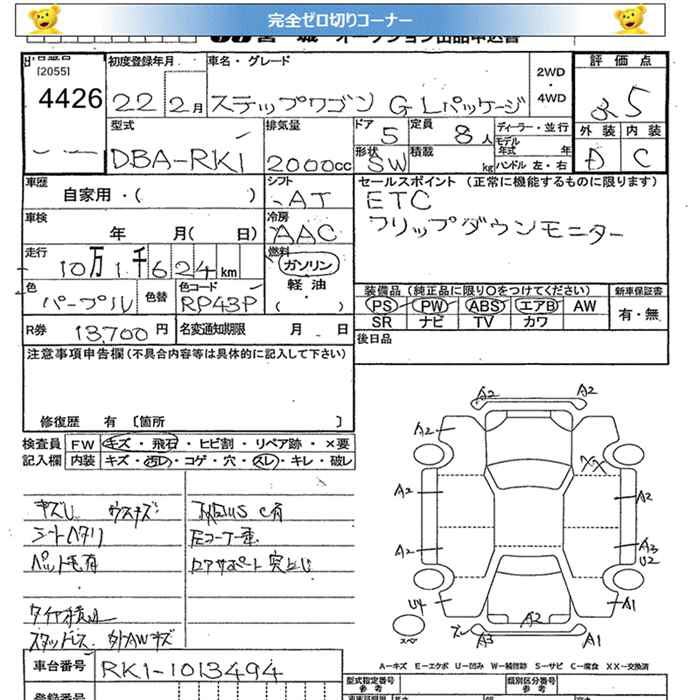 完全ゼロ切りコーナー
宮城 オークション出品申込書
[2055]
4426
初度登録年月
22年 2月
車名・グレード
ステップワゴン G Lパッケージ
2WD
・
4WD
評価点
3.5
外装 内装
D C
型式
DBA-RK1
排気量
2000cc
ドア 5
定員 8人
形状 SW
積載 kg
ディーラー・並行
モデル年式 年
ハンドル 左・右
車歴
自家用・( )
シフト
AT
セールスポイント (正常に機能するものに限ります)
ETC
フリップダウンモニター
車検
年 月( 日)
冷房
AAC
走行
10万1千624km
燃料
ガソリン
軽油
( )
色
パープル
色替
色コード
RP43P
装備品 (純正品に限り○をつけてください)
PS PW ABS エアB AW
SR ナビ TV カワ
新車保証書
有・無
R券 13,700円
名変通知期限 月 日
後日品
注意事項申告欄(不具合内容等は具体的に記入して下さい)
修復歴 有 〔箇所 〕
検査員記入欄
FW キズ・飛石・ヒビ割・リペア跡・×要
内装 キズ・汚レ・コゲ・穴・スレ・キレ・破レ
シートヘタリ
ペット毛有
スタッドレス 外AWキズ
A2 A2
A2
XX
A2 A2
A2 A3
U2
U4 A1
A2
A3 A1
スペア
A−キズ E−エクボ U−凹み W−補修跡 S−サビ C−腐食 XX−交換済
車台番号 RK1-1013494
型式指定番号
参考
類別区分番号
参考
登録番号